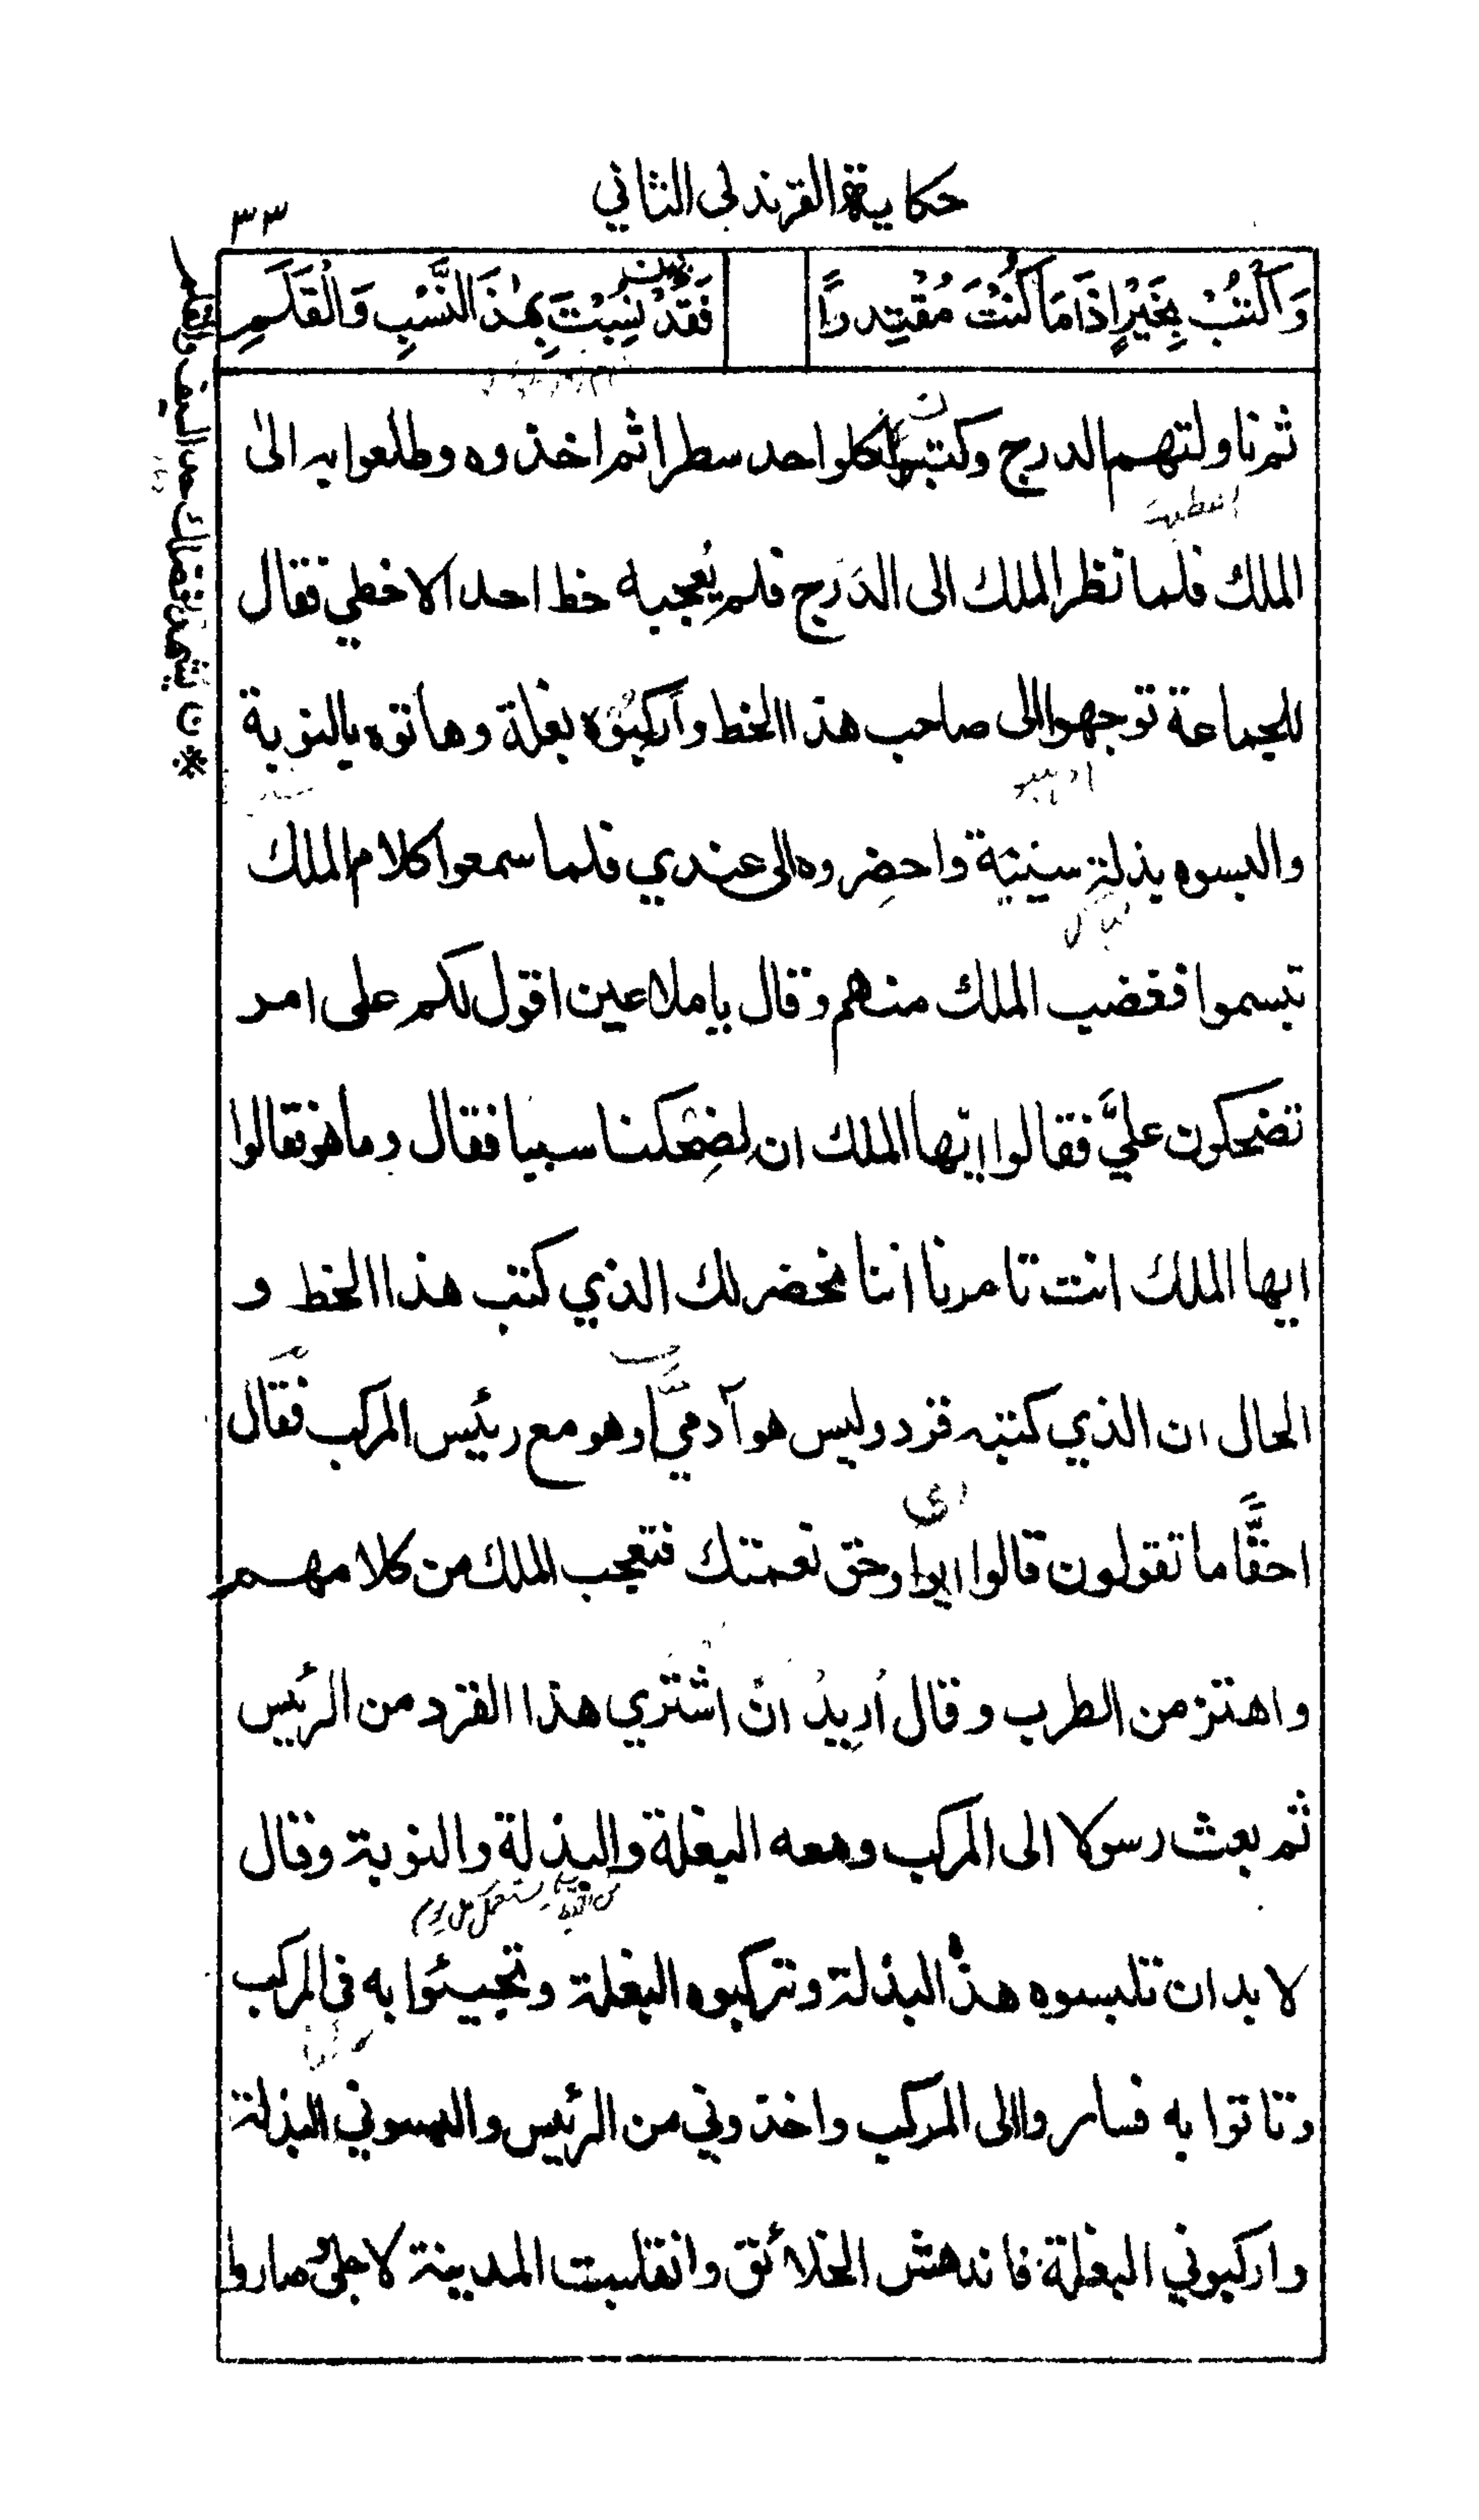 حكاية القرندلي الثاني
٣٣
وَاكْتُبْ بِخَيْرٍ إِذَا مَا كُنْتَ مُقْتَدِرًا فَقَدْ نُسِبْتَ بِهٰذَا النَّسَبِ وَالْقَلَمِ
ثم ناولتهم الدرج وكتبها لكل واحد سطرا ثم اخذوه وطلعوا به الى
الملك فلما نظر الملك الى الدَرَج فلم يُعجبه خط احد الا خطي فقال
للجماعة توجهوا الى صاحب هذا الخط وأركِبُوه بغلة وهاتوه بالنوبة
والبسوه بذلة سنيّة واحضِروه الى عندي فلما سمعوا كلام الملك
تبسموا فغضب الملك منهم وقال يا ملاعين اقول لكم على امر
تضحكون عليَّ فقالوا ايّها الملك ان لضِحْكنا سببا فقال وما هو فقالوا
ايها الملك انت تامرنا اننا نحضر لك الذي كتب هذا الخط و
الحال ان الذي كتبه قرد وليس هو آدميّا وهو مع ريئس المركب فقال
احقًّا ما تقولون قالوا ايوا وحق نعمتك فتعجب الملك من كلامهم
واهتز من الطرب وقال أريدُ ان اشتري هذا القرد من الرئيس
ثم بعث رسولا الى المركب ومعه البغلة والبذلة والنوبة وقال
لا بد ان تلبسوه هذه البذلة وتركبوه البغلة وتجيئوا به في المركب
وتاتوا به فساروا الى المركب واخذوني من الرئيس والبسوني البذلة
واركبوني البغلة فاندهش الخلائق وانقلبت المدينة لاجلي صاروا